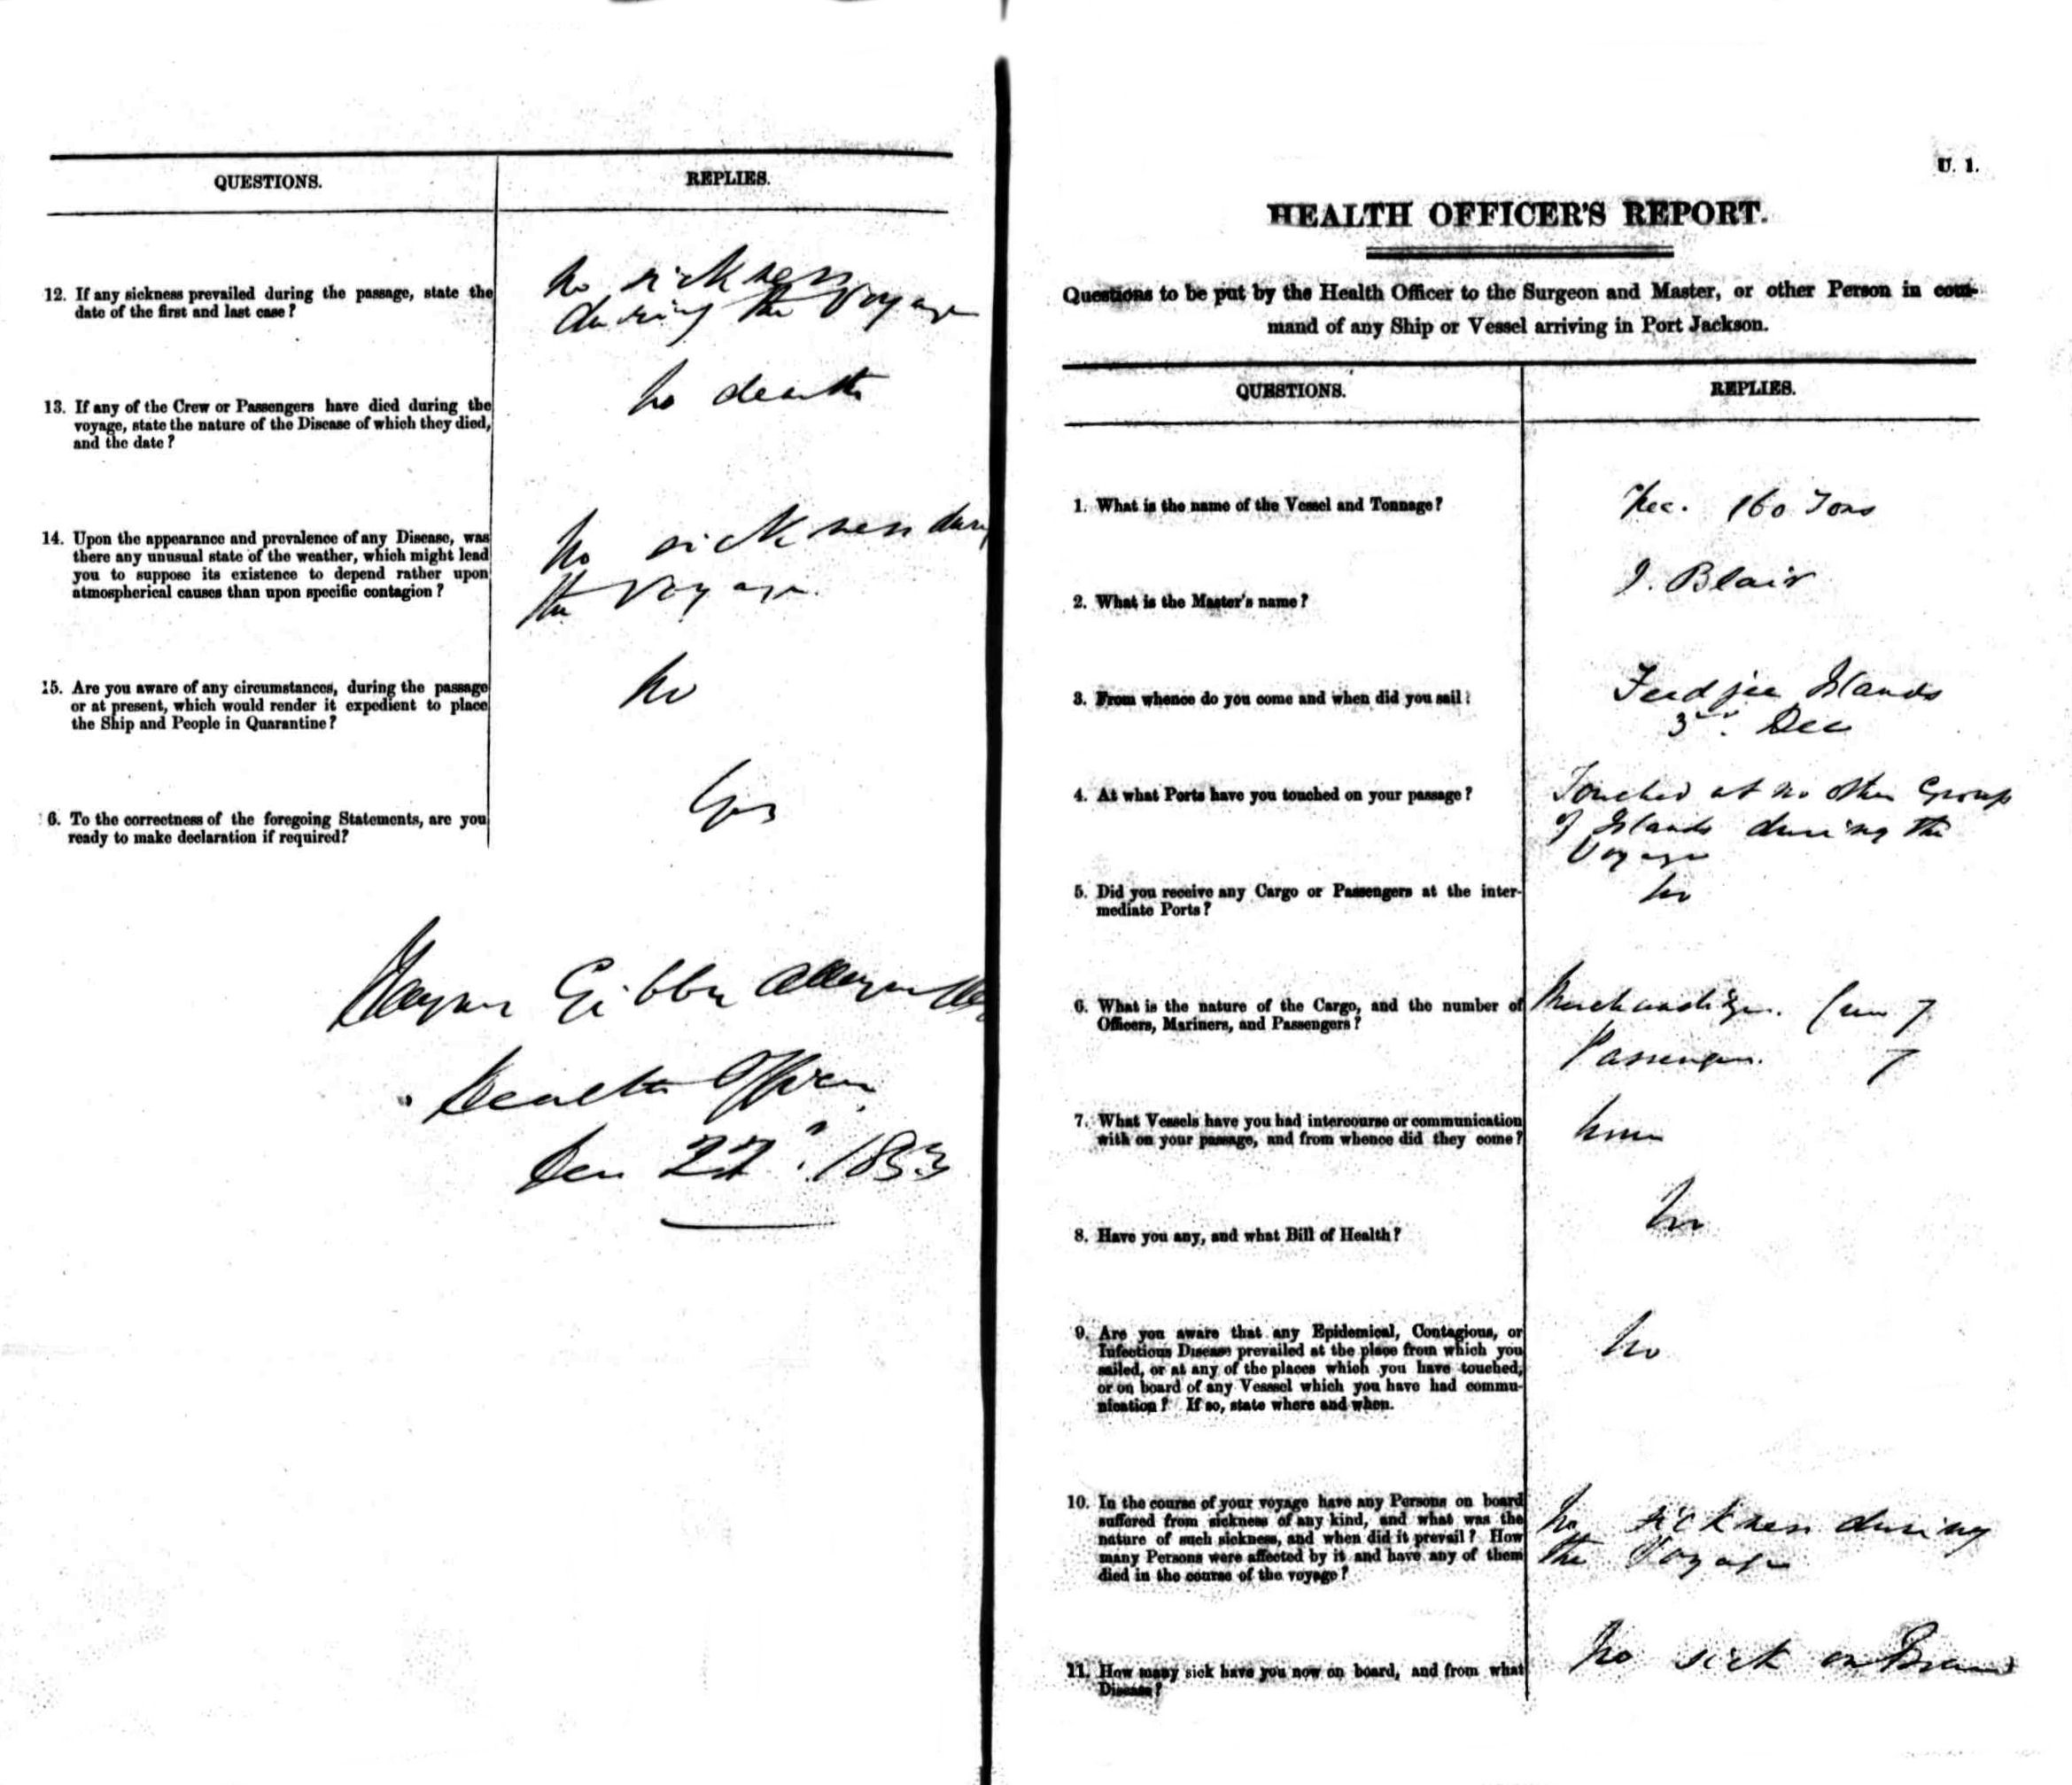 QUESTIONS.
REPLIES.
12. If any sickness prevailed during the passage, state the
date of the first and last case?
no sickness
during the Voyage
13. If any of the Crew or Passengers have died during the
voyage, state the nature of the Disease of which they died,
and the date?
no death
14. Upon the appearance and prevalence of any Disease, was
there any unusual state of the weather, which might lead
you to suppose its existence to depend rather upon
atmospherical causes than upon specific contagion?
no sickness
the Voyage.
15. Are you aware of any circumstances, during the passage
or at present, which would render it expedient to place
the Ship and People in Quarantine?
no
6. To the correctness of the foregoing Statements, are you
ready to make declaration if required?
Yes
Haynes Gibbes Alleyne
Health Officer
Dec 22d. 1853
U. 1.
HEALTH OFFICER'S REPORT.
Questions to be put by the Health Officer to the Surgeon and Master, or other Person in com-
mand of any Ship or Vessel arriving in Port Jackson.
QUESTIONS.
REPLIES.
1. What is the name of the Vessel and Tonnage?
160 Tons
2. What is the Master's name?
J. Blair
3. From whence do you come and when did you sail?
Feedjee Islands
3rd. Dec
4. At what Ports have you touched on your passage?
Touched at no other Group
of Islands during the
Voyage
5. Did you receive any Cargo or Passengers at the inter-
mediate Ports?
no
6. What is the nature of the Cargo, and the number of
Officers, Mariners, and Passengers?
Merchandize. Crew 7
Passengers. 7
7. What Vessels have you had intercourse or communication
with on your passage, and from whence did they come?
none
8. Have you any, and what Bill of Health?
no
9. Are you aware that any Epidemical, Contagious, or
Infectious Disease prevailed at the place from which you
sailed, or at any of the places which you have touched,
or on board of any Vesssel which you have had commu-
nication? If so, state where and when.
no
10. In the course of your voyage have any Persons on board
suffered from sickness of any kind, and what was the
nature of such sickness, and when did it prevail? How
many Persons were affected by it and have any of them
died in the course of the voyage?
no sickness during
the Voyage
11. How many sick have you now on board, and from what
Disease?
no sick on Board